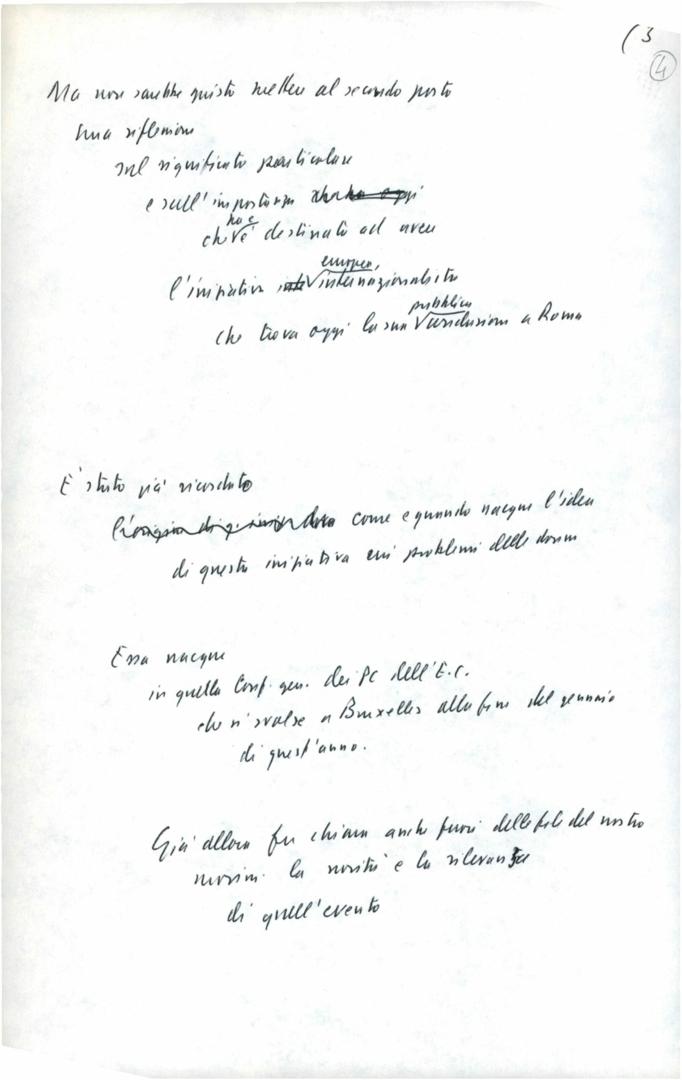 (3
4
Ma non sarebbe giusto mettere al secondo posto
una riflessione
sul significato particolare
e sull'importanza
ha e
che è destinata ad avere
europea,
l'iniziativa internazionalista
pubblica
che trova oggi la sua conclusione a Roma
E' stato già ricordato
come e quando nacque l'idea
di questa iniziativa sui problemi delle donne
Essa nacque
in quella Conf. gen. dei PC dell'E.C.
che si svolse a Bruxelles alla fine del gennaio
di quest'anno.
Già allora fu chiara anche fuori delle file del nostro
movim. la novità e la rilevanza
di quell'evento